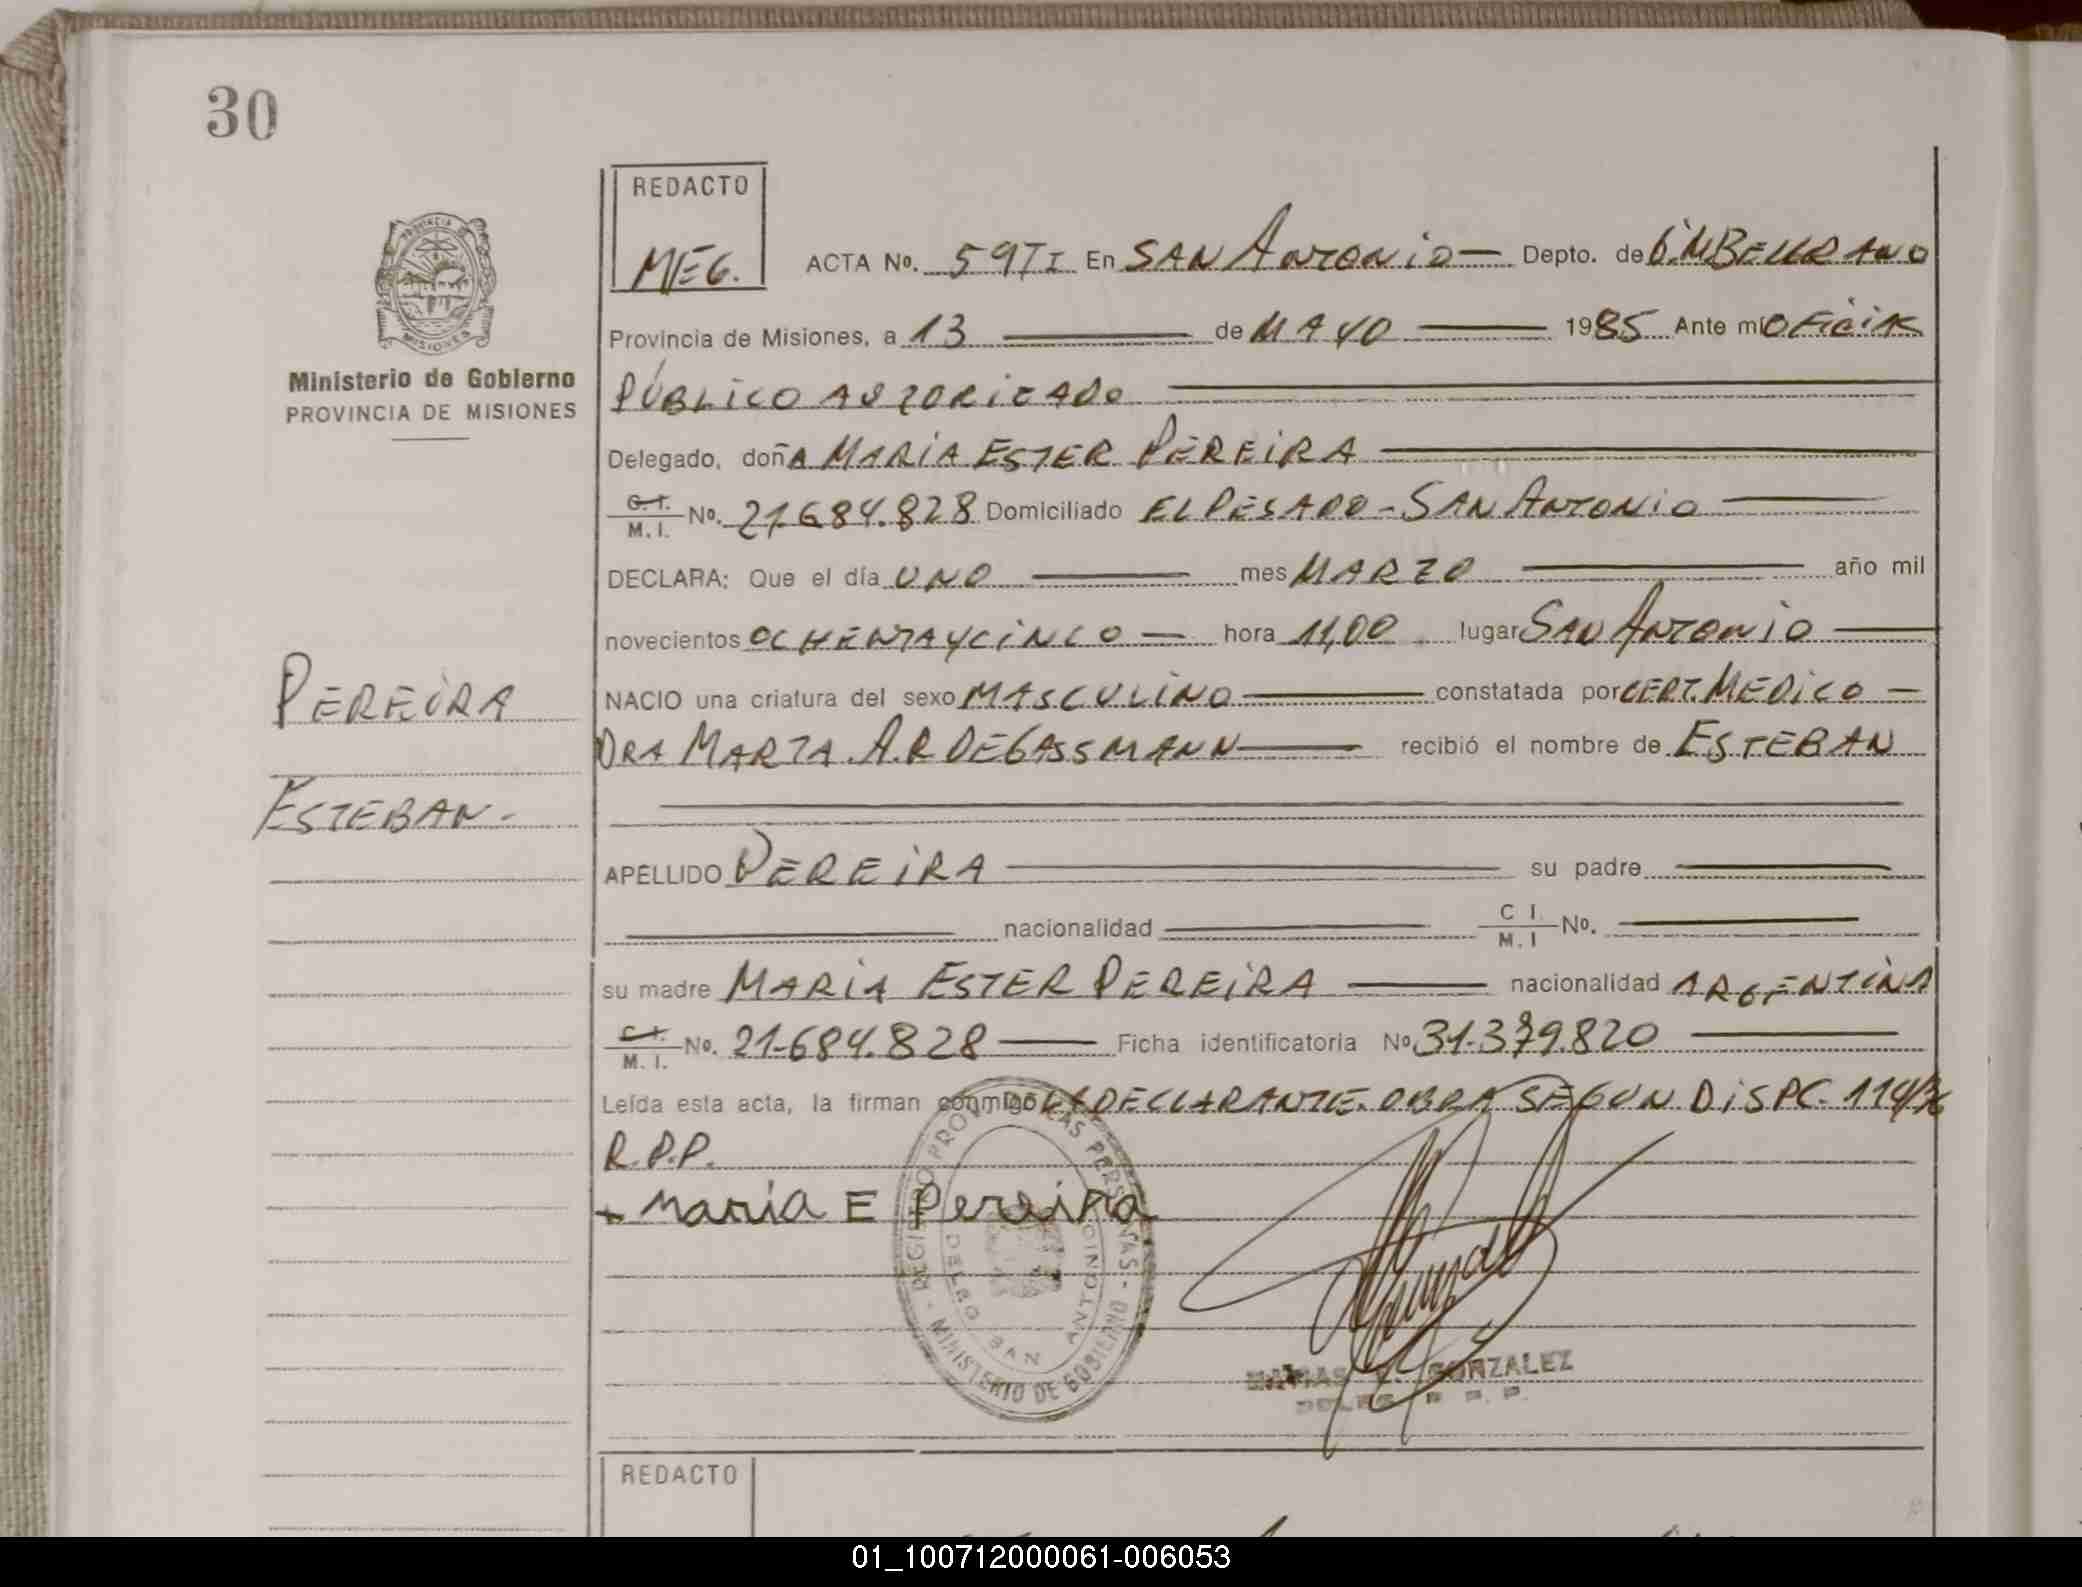 30
REDACTO
MEG.
ACTA No. 59TI En SAN ANTONIO Depto. de G.M BELGRANO
Ministerio de Gobierno
PROVINCIA DE MISIONES
Provincia de Misiones, a 13 de MAYO 1985 Ante mi OFICIAL
PÚBLICO AUTORIZADO
Delegado, doñA MARIA ESTER PEREIRA
C.I. M.I. No. 21.684.828 Domiciliado EL PESADO - SAN ANTONIO
DECLARA: Que el día UNO mes MARZO año mil
novecientos OCHENTA Y CINCO hora 11,00 lugar SAN ANTONIO
PEREIRA
ESTEBAN -
NACIO una criatura del sexo MASCULINO constatada por CERT. MEDICO
DRA MARTA A.R DE GASSMANN recibió el nombre de ESTEBAN
APELLIDO PEREIRA su padre
nacionalidad C I. M. I No.
su madre MARIA ESTER PEREIRA nacionalidad ARGENTINA
C.I. M.I. No. 21.684.828 Ficha identificatoria No 31.379.820
Leída esta acta, la firman conmigo LA DECLARANTE. OBRA SEGUN DISPC. 114/
R.P.P.
+ Maria E Pereira
REGISTRO PROV. DE LAS PERSONAS - MINISTERIO DE GOBIERNO
DELEG SAN ANTONIO
GONZALEZ
R. P. P.
REDACTO
01_100712000061-006053